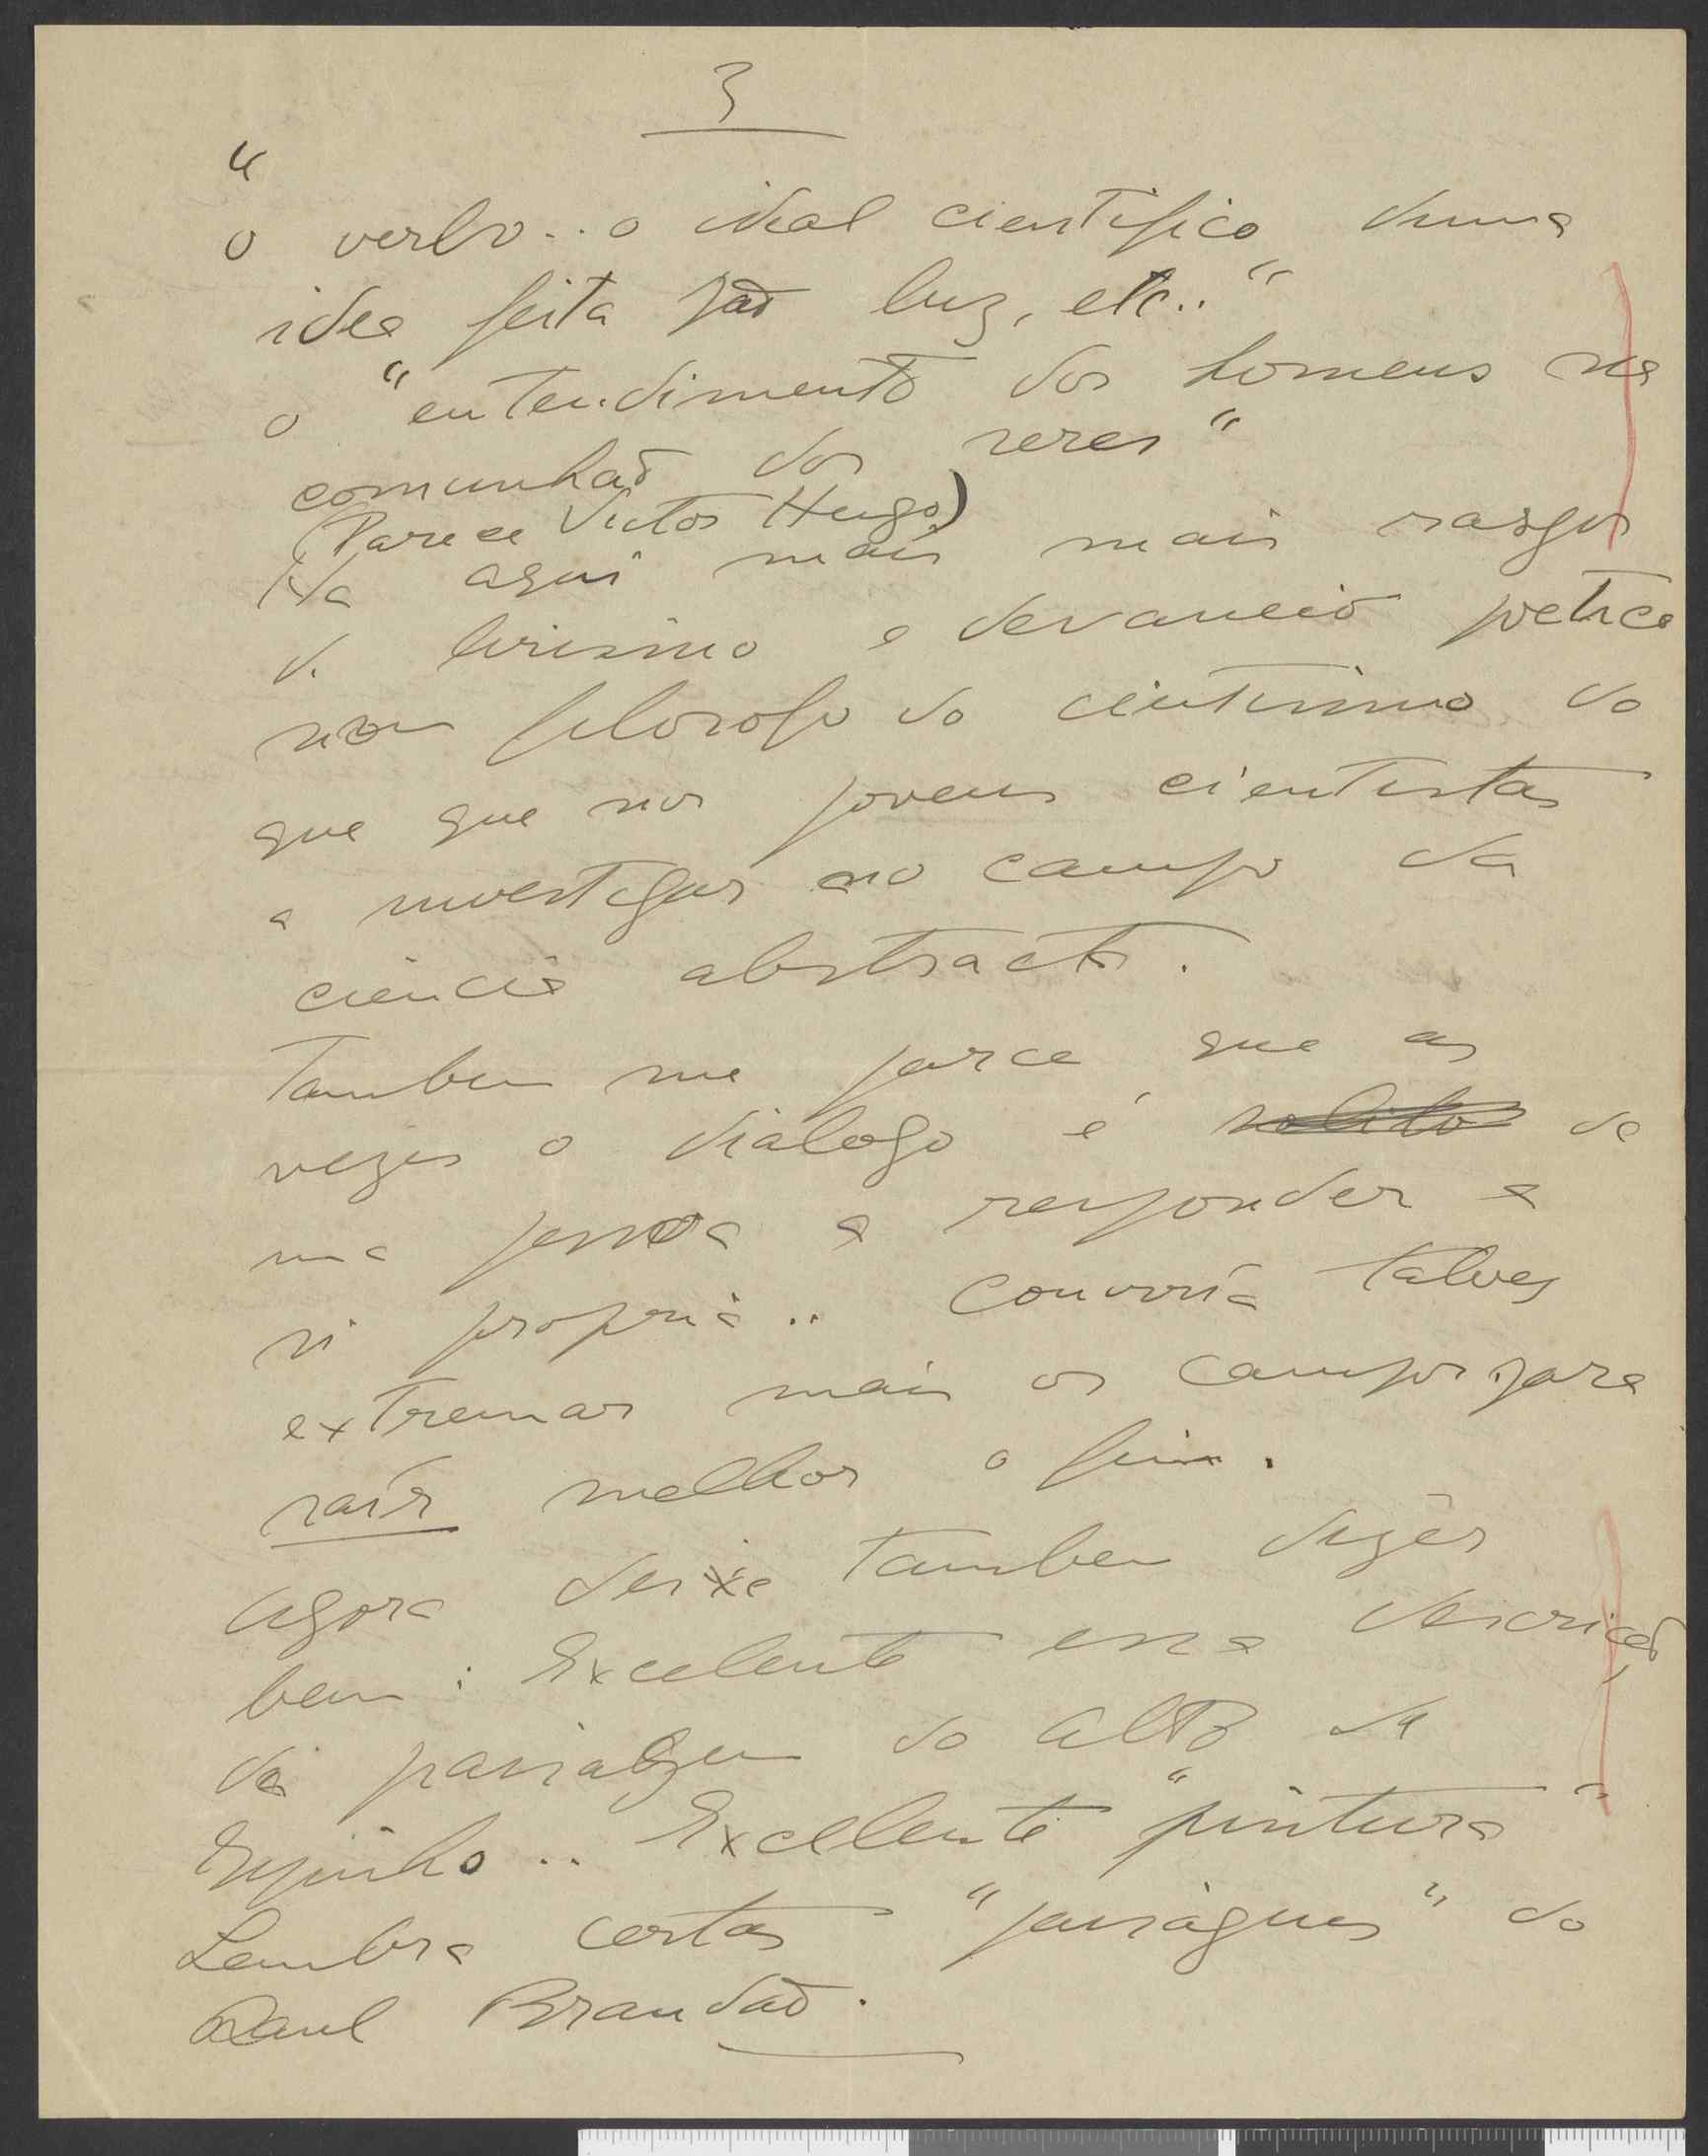 3
"
o verbo.. o ideal cientifico duma
idea feita pão luz, etc.."
o "entendimento dos homens na
comunhão dos seres"
(Parece Victor Hugo)
Ha aqui mais mais rasgos
de lirismo e devaneio poetico
num filosofo do cientismo do
que que nos jovens cientistas
a investigar no campo da
ciencia abstracta.
Tambem me parce que as
vezes o dialogo é solito de
uma pessoa a responder a
si propria.. Conviria talvez
extremar mais os campos para
saír melhor o fim.
Agora deixe tambem dizêr
bem: Excelente essa descrição
da paisagem do alto de
Espinho.. Excellente "pintura"
Lembra certas "paisagens" do
Raul Brandão.